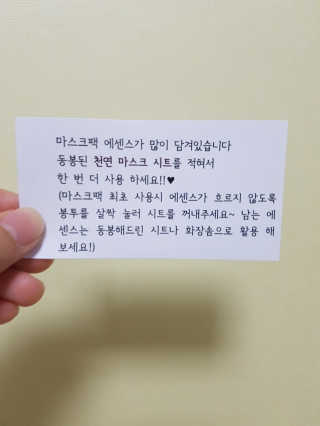 마스크팩 에센스가 많이 담겨있습니다
동봉된 천연 마스크 시트를 적혀서
한 번 더 사용 하세요!!♥
(마스크팩 최초 사용시 에센스가 흐르지 않도록
봉투를 살짝 눌러 시트를 꺼내주세요~ 남는 에
센스는 동봉해드린 시트나 화장솜으로 활용 해
보세요!)